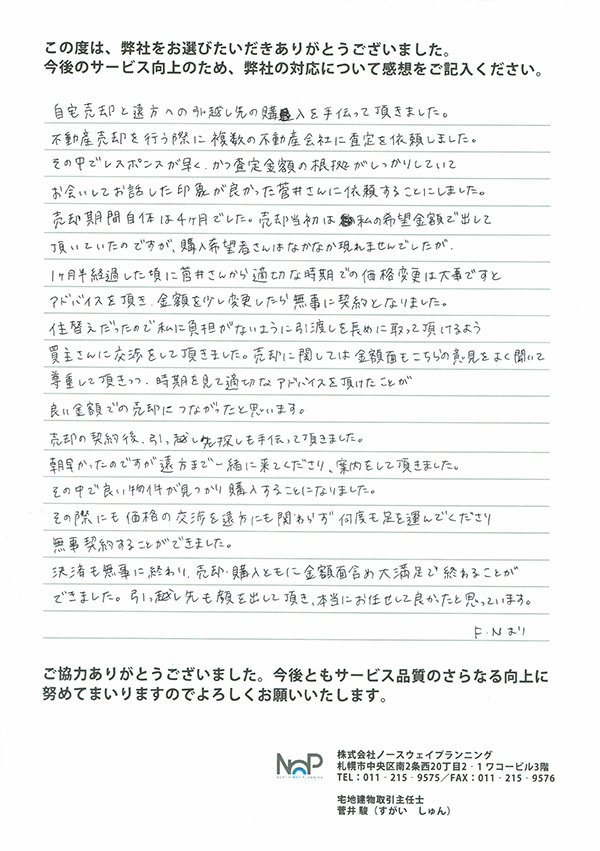 この度は、弊社をお選びたいだきありがとうございました。
今後のサービス向上のため、弊社の対応について感想をご記入ください。
自宅売却と遠方への引越し先の購入を手伝って頂きました。
不動産売却を行う際に複数の不動産会社に査定を依頼しました。
その中でレスポンスが早く、かつ査定金額の根拠がしっかりしていて
お会いしてお話した印象が良かった菅井さんに依頼することにしました。
売却期間自体は4ヶ月でした。売却当初は私の希望金額で出して
頂いていたのですが、購入希望者さんはなかなか現れませんでしたが、
1ヶ月半経過した頃に菅井さんから適切な時期での価格変更は大事ですと
アドバイスを頂き、金額を少し変更したら無事に契約となりました。
住替えだったので私に負担がないように引渡しを長めに取って頂けるよう
買主さんに交渉をして頂きました。売却に関しては金額面もこちらの意見をよく聞いて
尊重して頂きつつ、時期を見て適切なアドバイスを頂けたことが
良い金額での売却につながったと思います。
売却の契約後、引っ越し先探しも手伝って頂きました。
朝早かったのですが遠方まで一緒に来てくださり、案内をして頂きました。
その中で良い物件が見つかり購入することになりました。
その際にも価格の交渉を遠方にも関わらず何度も足を運んでくださり
無事契約することができました。
決済も無事に終わり、売却・購入ともに金額面含め大満足で終わることが
できました。引っ越し先も顔を出して頂き、本当にお任せして良かったと思っています。
F.Nより
ご協力ありがとうございました。今後ともサービス品質のさらなる向上に
努めてまいりますのでよろしくお願いいたします。
NOP
NORTH WAY PLANNING
株式会社ノースウェイプランニング
札幌市中央区南2条西20丁目2‐1ワコービル3階
TEL：011‐215‐9575／FAX：011‐215‐9576
宅地建物取引主任士
菅井 駿（すがい　しゅん）